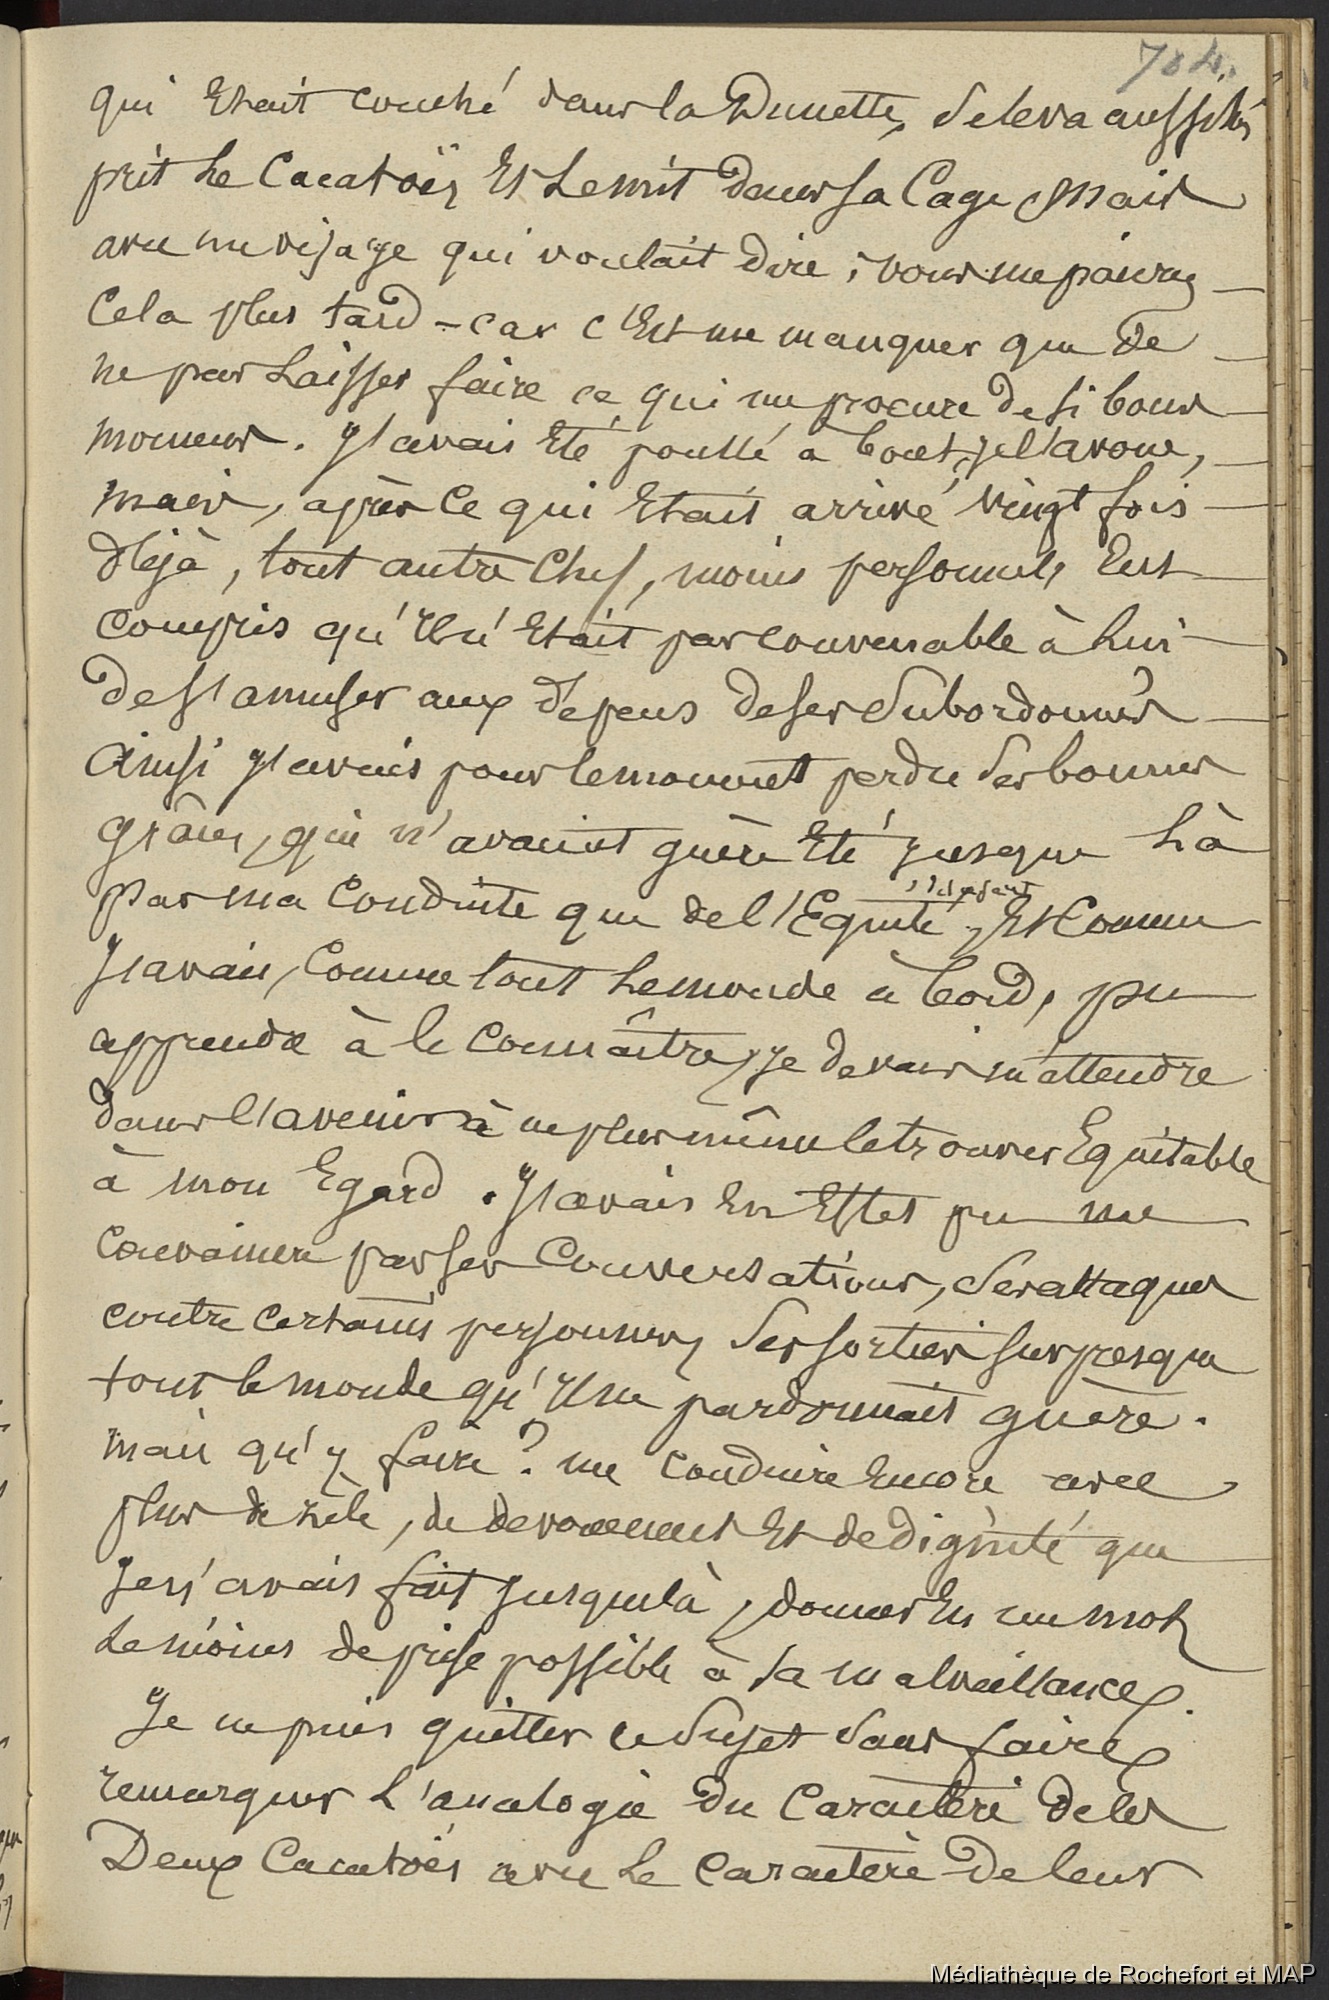 784.
qui était couché dans la Dunette, se leva aussitôt
prit le Cacatoës et le mit dans sa Cage mais
avec un visage qui voulait dire ; vous me paierez
Cela plus tard - car c'est me manquer que de
ne pas laisser faire ce qui me procure de si bons
moments. J'avais été poussé à bout, je l'avoue,
mais, après ce qui était arrivé vingt fois
déjà, tout autre Chef, moins personnel, eut
compris qu'il n'était pas convenable à lui
de s'amuser aux dépens de ses Subordonnés
Ainsi j'avais pour le moment perdu ses bonnes
grâces, qui n'avaient guère été jusque là
par ma Conduite que de l'Equité, Et Comme
J'avais, Comme tout le monde à bord, pu
apprendre à le Connaître, je devais m'attendre
dans l'avenir à ne plus même le trouver Equitable
à mon Egard. J'avais en Effet pu me
Convaincre par ses Conversations, ses attaques
contre certaines personnes, ses sorties sur presque
tout le monde qu'il ne pardonnait guère.
mais qu'y faire ? me conduire encore avec
plus de zèle, de dévouement et de dignité que
je n'avais fait jusque là, donner en un mot
le moins de prise possible à sa malveillance.
Je ne puis quitter ce Sujet sans faire
remarquer l'analogie du Caractère de les
Deux Cacatoës avec le caractère de leur
Médiathèque de Rochefort et MAP